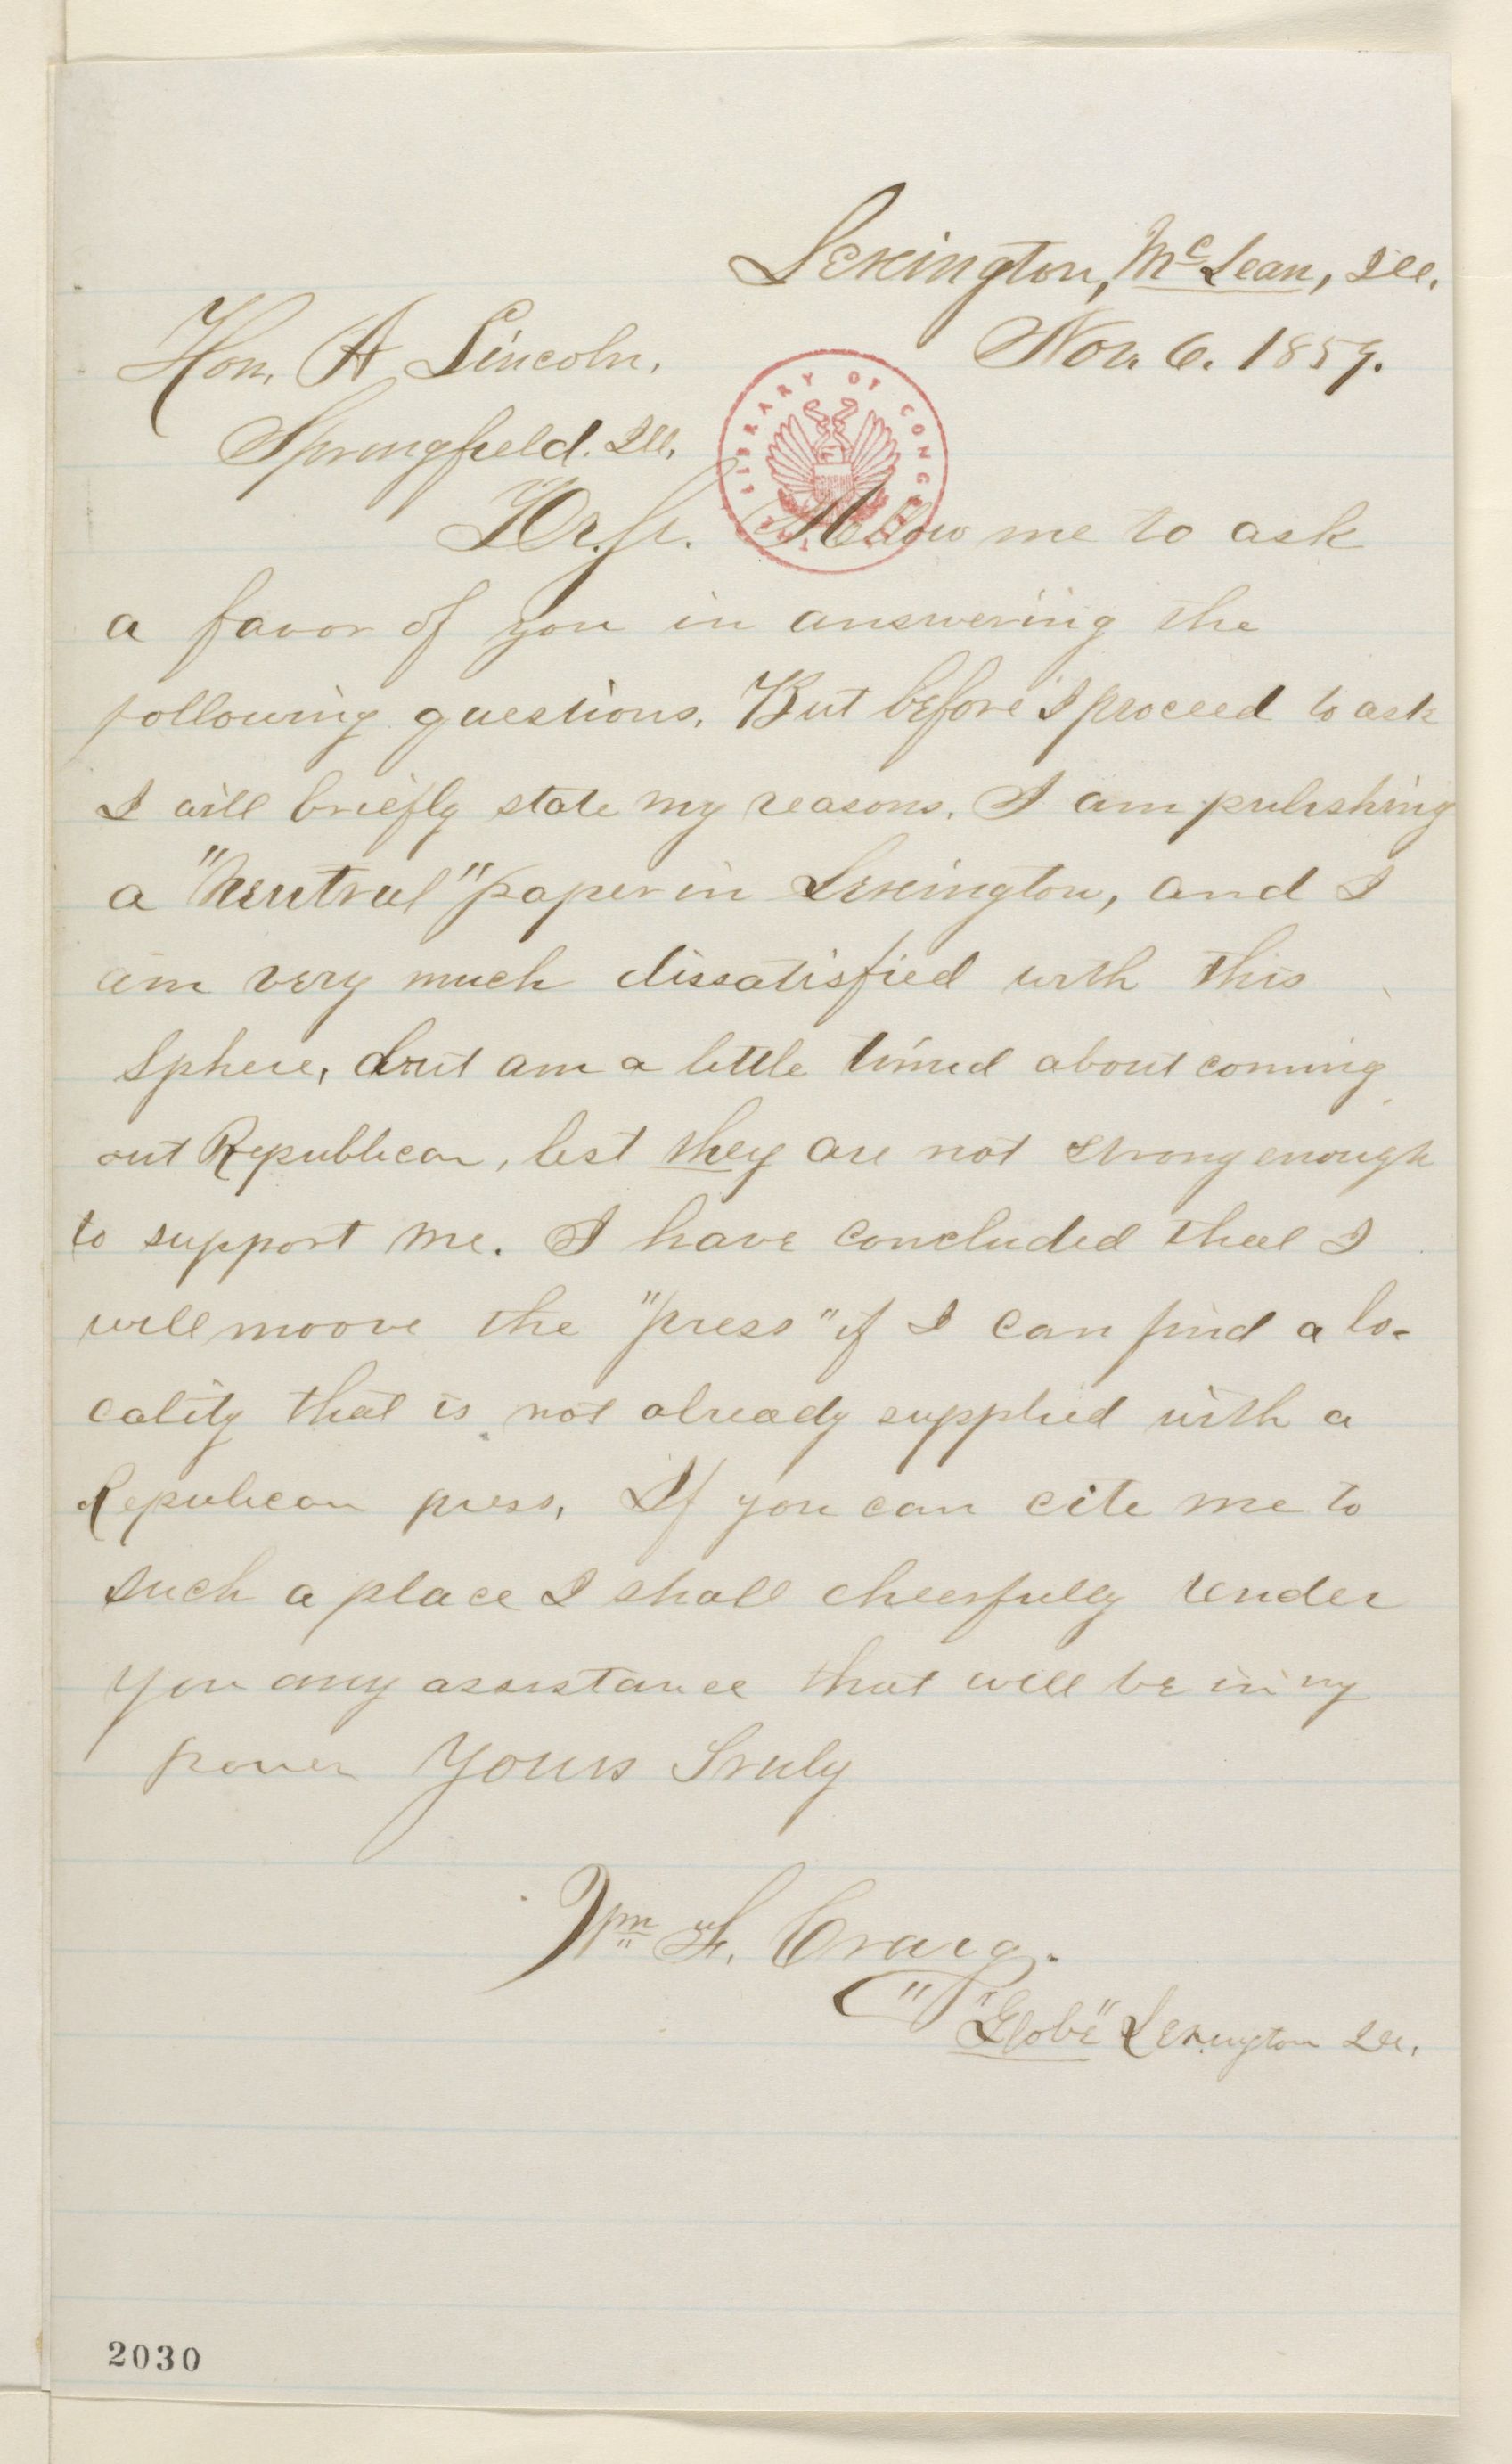 Lexington, McLean, Ill.
Nov. 6. 1859.
Hon. A Lincoln.
Springfield. Ill.
THE LIBRARY OF CONGRESS
Dr. Sir. Allow me to ask
a favor of you in answering the
following questions. But before I proceed to ask
I will briefly state my reasons. I am pulishing
a "Neutral" paper in Lexington, and I
am very much dissatisfied with this
sphere, but am a little timid about coming
out Republican, lest they are not strong enough
to support me. I have concluded that I
will moove the "press" if I can find a lo-
cality that is not already supplied with a
Repulican press. If you can cite me to
such a place I shall cheerfully render
you any assistance that will be in my
power Yours Truly
Wm F. Craig.
"Globe" Lexington Ill.
2030